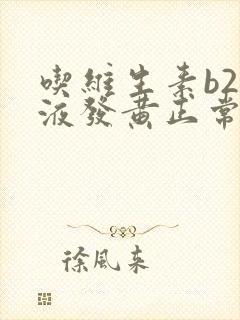 喫維生素b2
液發黃正常
徐風来